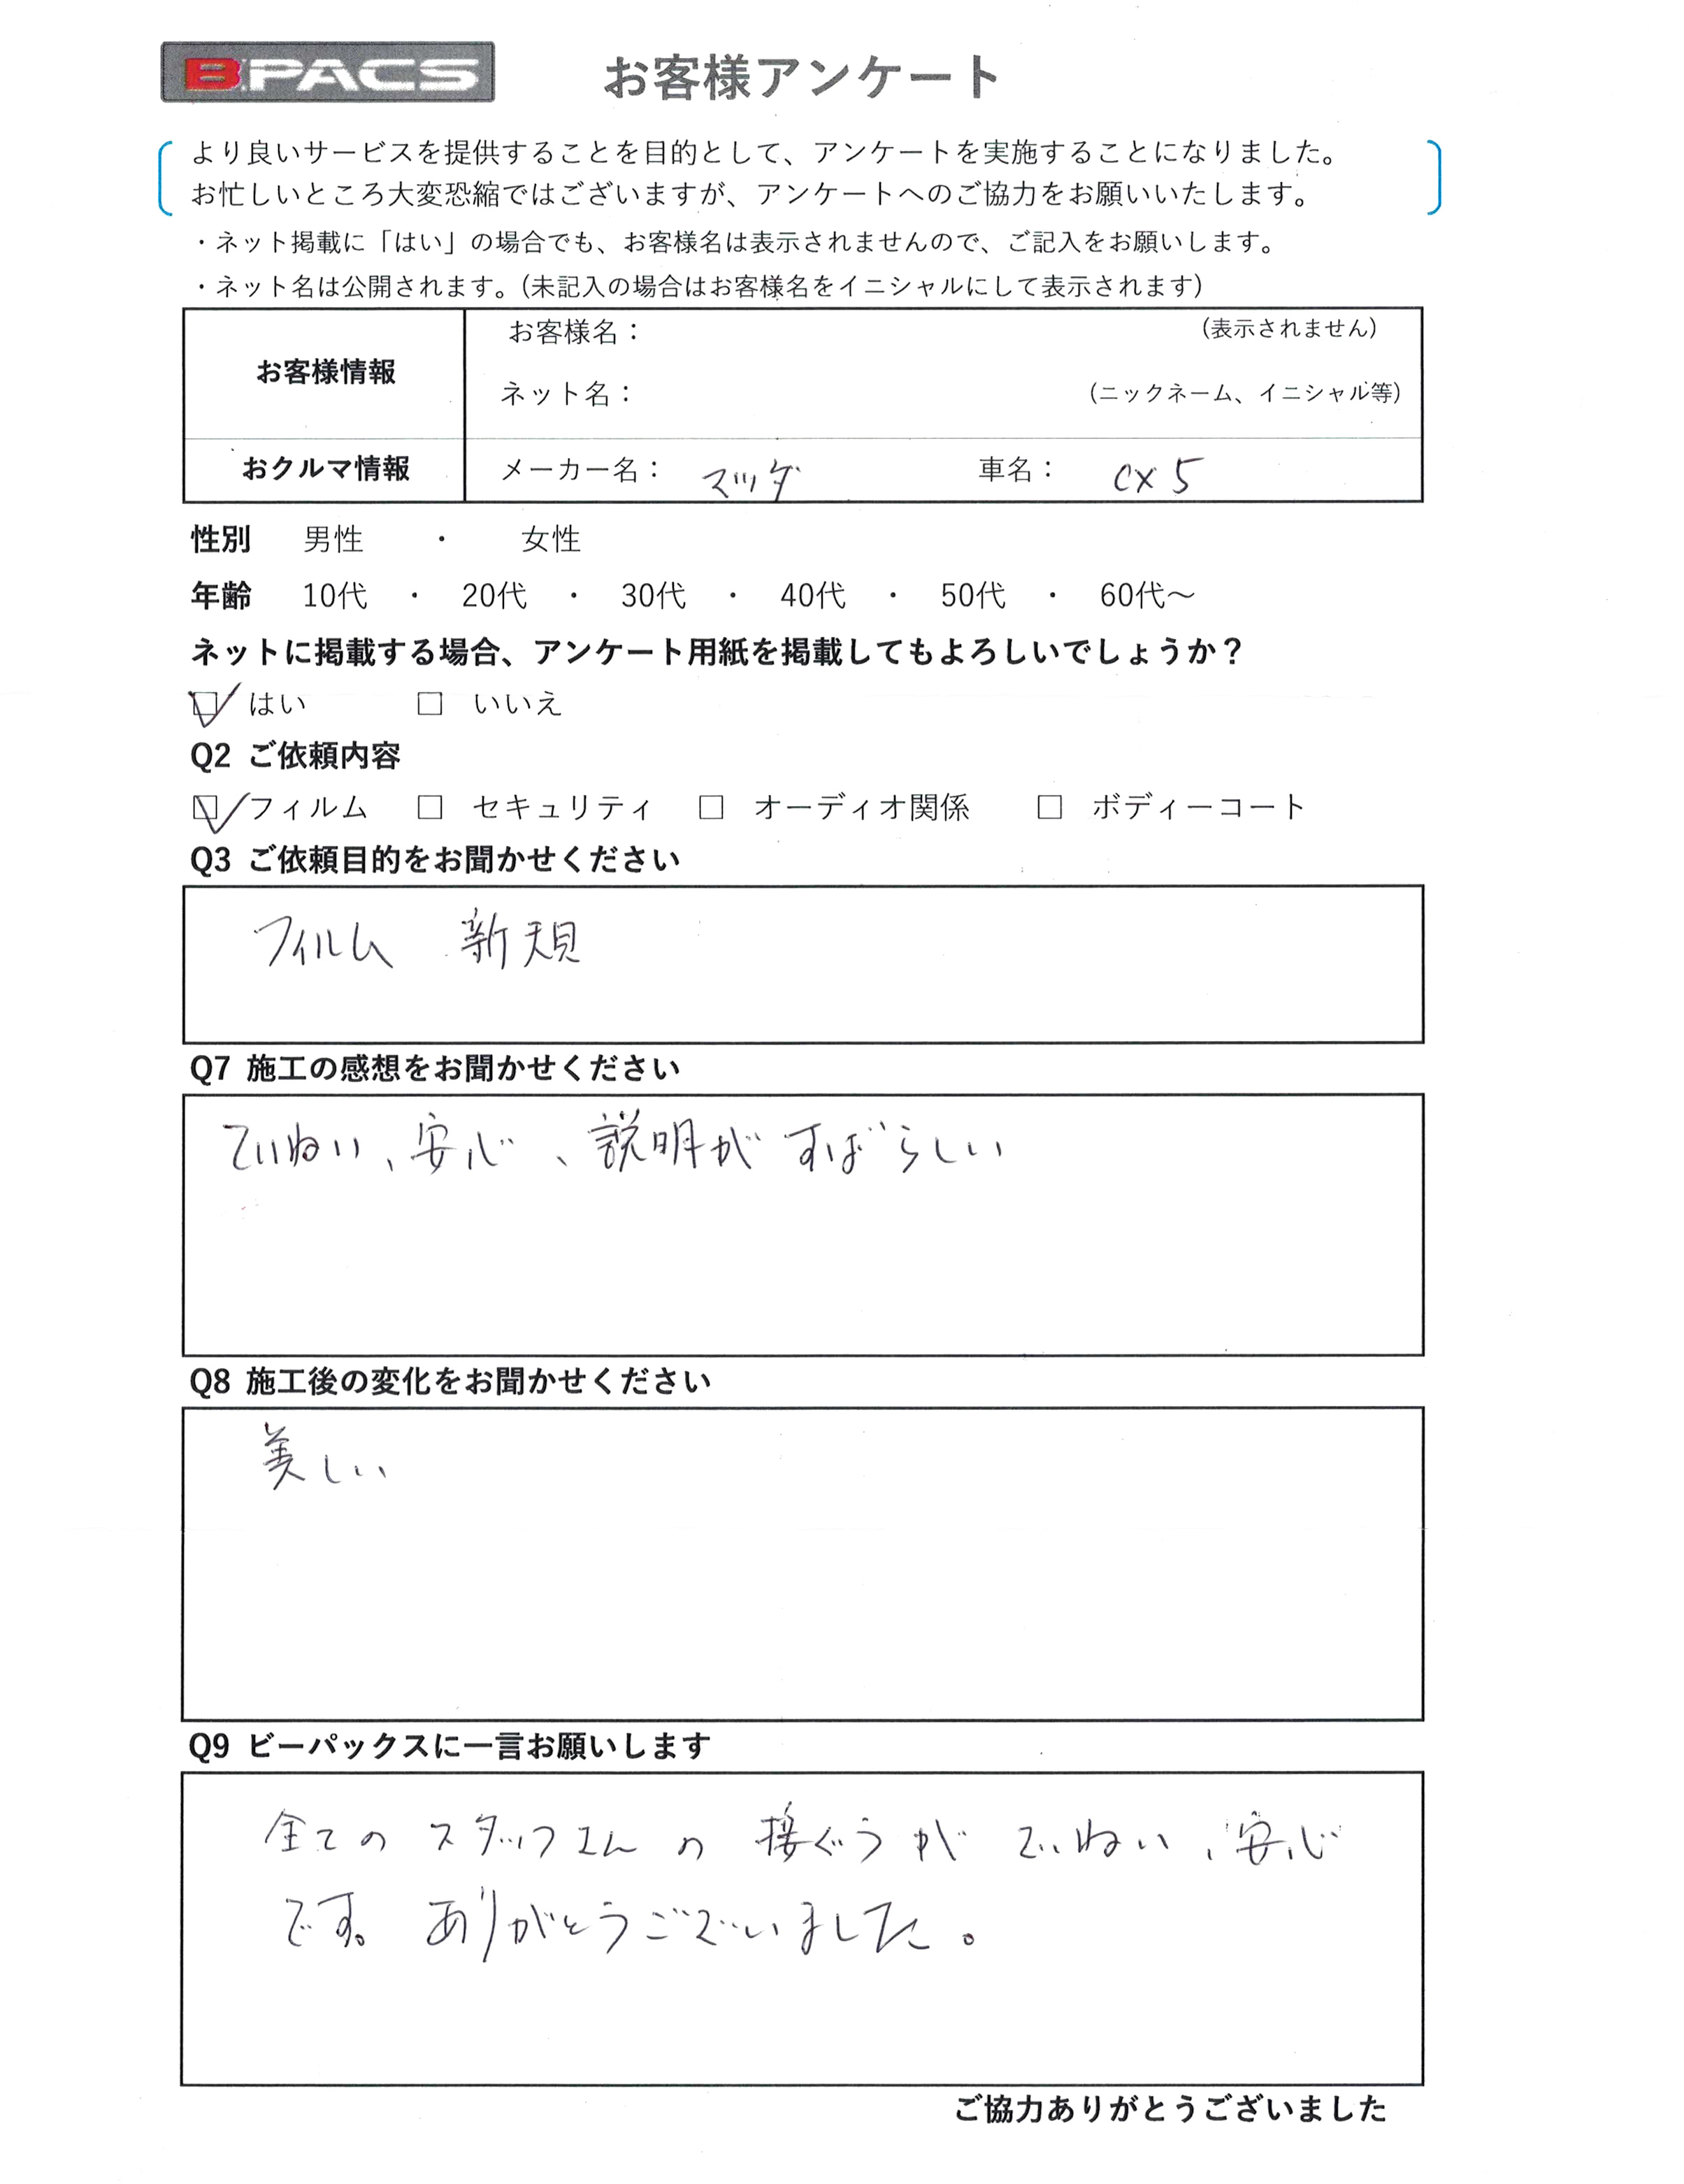 B.PACS お客様アンケート
より良いサービスを提供することを目的として、アンケートを実施することになりました。
お忙しいところ大変恐縮ではございますが、アンケートへのご協力をお願いいたします。
・ネット掲載に「はい」の場合でも、お客様名は表示されませんので、ご記入をお願いします。
・ネット名は公開されます。(未記入の場合はお客様名をイニシャルにして表示されます)
お客様情報
お客様名： (表示されません)
ネット名： (ニックネーム、イニシャル等)
おクルマ情報 メーカー名： マツダ 車名： CX5
性別 男性 ・ 女性
年齢 10代 ・ 20代 ・ 30代 ・ 40代 ・ 50代 ・ 60代～
ネットに掲載する場合、アンケート用紙を掲載してもよろしいでしょうか？
☑ はい □ いいえ
Q2 ご依頼内容
☑ フィルム □ セキュリティ □ オーディオ関係 □ ボディーコート
Q3 ご依頼目的をお聞かせください
フィルム 新規
Q7 施工の感想をお聞かせください
ていねい、安心、説明がすばらしい
Q8 施工後の変化をお聞かせください
美しい
Q9 ビーパックスに一言お願いします
全てのスタッフさんの接ぐうがていねい、安心
です。ありがとうございました。
ご協力ありがとうございました